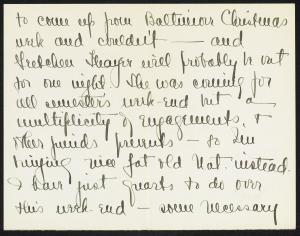 to come up from Baltimore Christmas
week and couldn't — and
Gretchen Thayer will probably be out
for one night. She was coming for
all semesters week-end but a
multiplicity of engagements, &
other friends prevents — so I'm
bringing nice fat old Nat. instead.
I have just quarts to do over
this week-end — some necessary